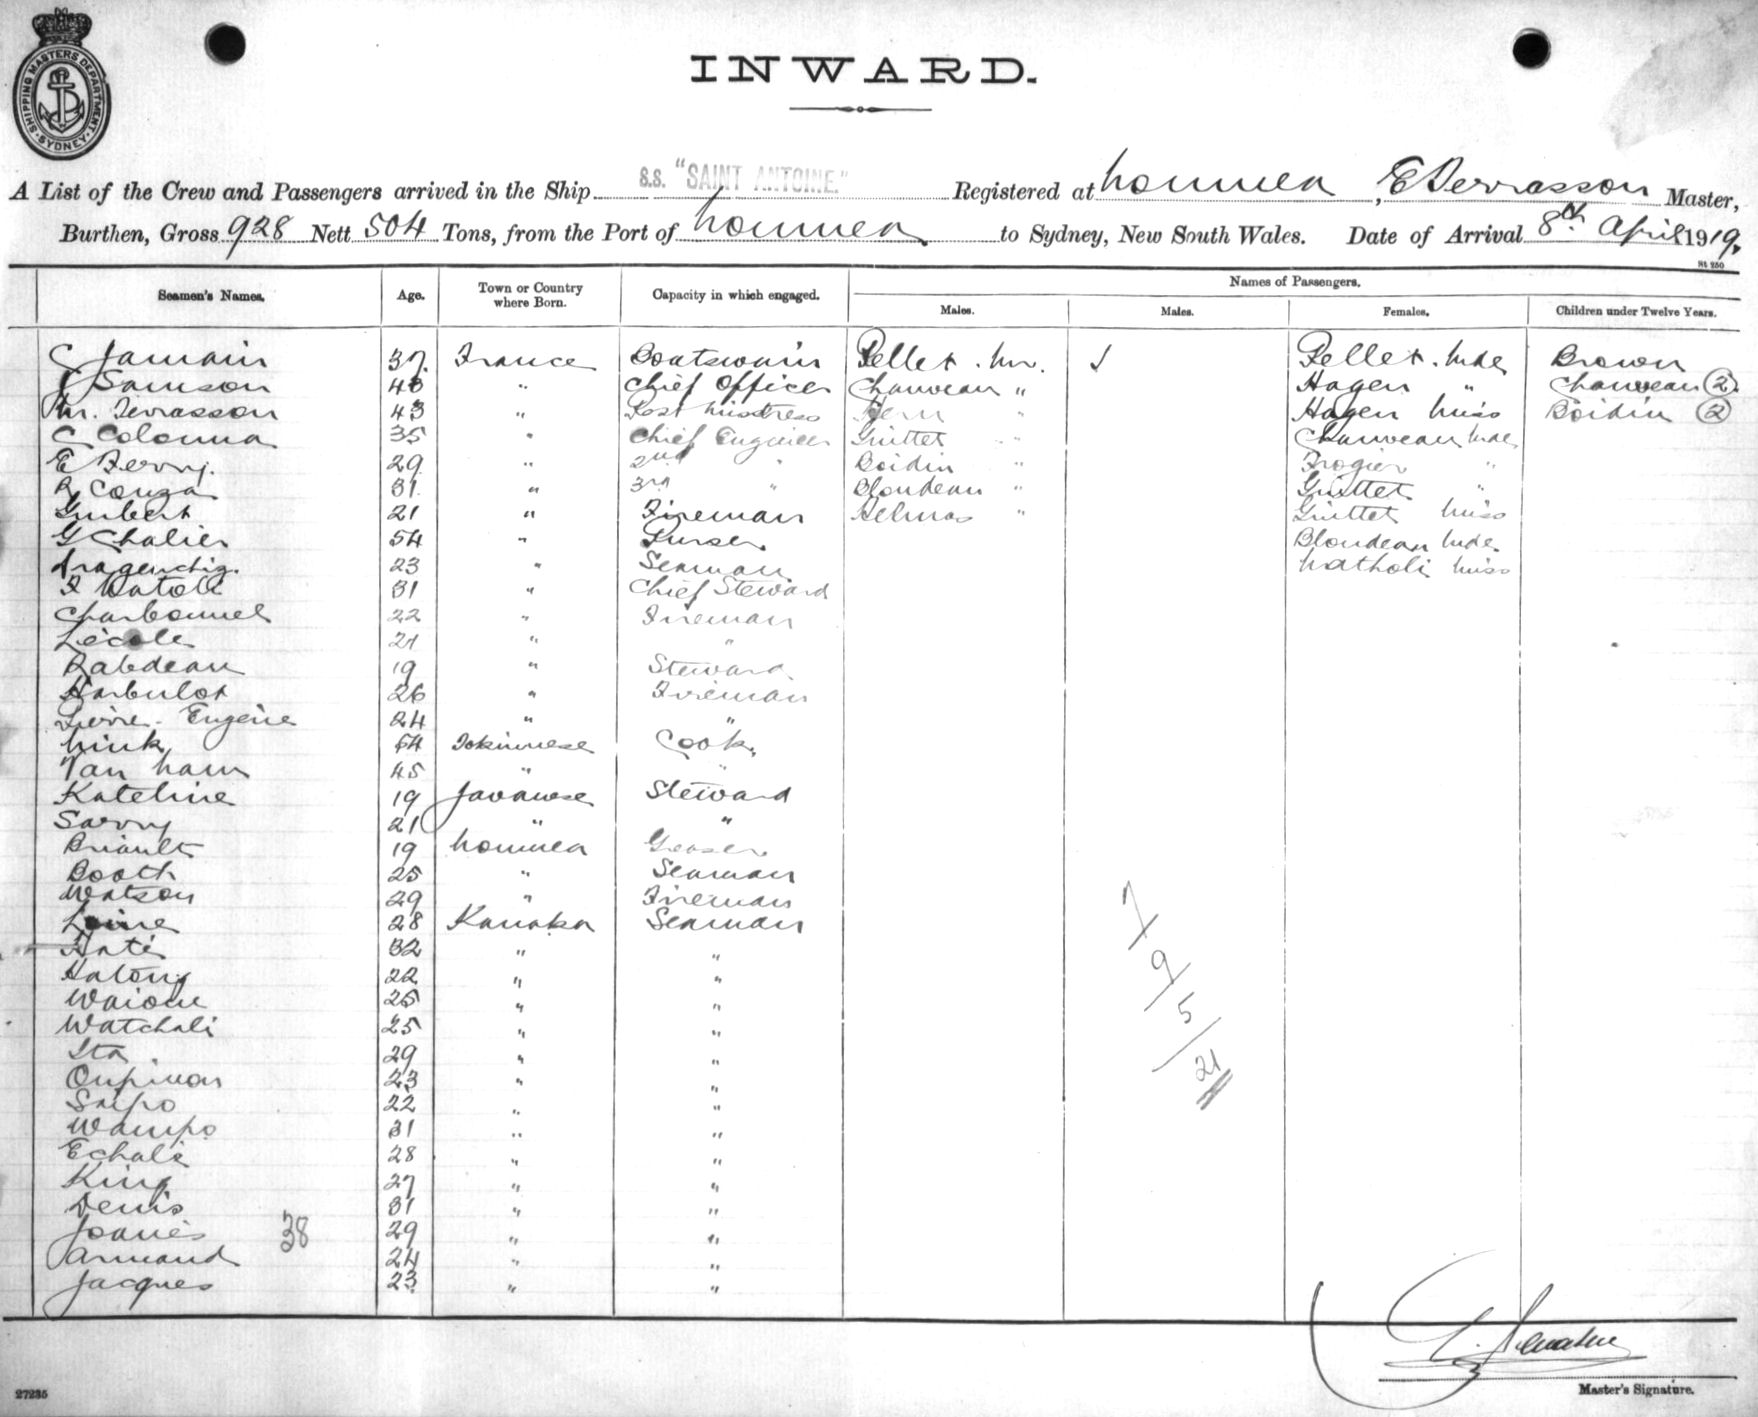 SHIPPING MASTERS DEPARTMENT SYDNEY
INWARD.
A List of the Crew and Passengers arrived in the Ship S.S. "SAINT ANTOINE." Registered at Noumea, E Terrasson Master,
Burthen, Gross 928 Nett 504 Tons, from the Port of Noumea to Sydney, New South Wales. Date of Arrival 8th April 1919.
St 250
Seamen's Names. Age. Town or Country where Born. Capacity in which engaged. Names of Passengers.
Males. Males. Females. Children under Twelve Years.
C Jamain 37 France Boatswain Pellet Mr. Pellet Mde Brown
J Samson 48 " Chief Officer Chauveau " Hagen " Chauveau (2)
Mr. Terrasson 43 " " Hagen Miss Boidin (2)
C Colonna 35 " Chief Engineer Guittet " Chauveau Mde
E Ferry. 29 " 2nd " Boidin " Frogier "
R Couza 31 " 3rd " Blondeau " Guittet "
Guibert 21 " Fireman Delmas " Guittet Miss
G Chalier 54 " Purser Blondeau Mde
23 " Seaman Natholi Miss
31 " Chief Steward
Charbonnel 22 " Fireman
Lécole 21 " "
Rabdeau 19 " Steward
Harbulot 26 " Fireman
Pierre Eugène 24 " "
Mink 54 Tokinnese Cook
Van Nam 45 " "
Kateline 19 Javanese Steward
Sarry 21 " "
Briault 19 Noumea Greaser
Booth 25 " Seaman
Watson 29 " Fireman
28 Kanaka Seaman
Haté 32 " "
Hatony 22 " "
Waione 25 " "
Watchali 25 " "
Ita 29 " "
Oupiman 23 " "
Saipo 22 " "
Waupo 31 " "
Echalé 28 " "
King 27 " "
Denis 31 " "
Joanes 29 " "
38
Armand 24 " "
Jacques 23 " "
7
9
5
21
Master's Signature.
27235